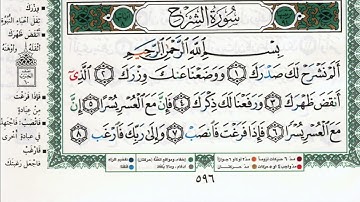 سُورَةُ الشَّرْحِ
بِسْمِ اللَّهِ الرَّحْمَٰنِ الرَّحِيمِ
أَلَمْ نَشْرَحْ لَكَ صَدْرَكَ ١ وَوَضَعْنَا عَنكَ وِزْرَكَ ٢ الَّذِي
أَنقَضَ ظَهْرَكَ ٣ وَرَفَعْنَا لَكَ ذِكْرَكَ ٤ فَإِنَّ مَعَ الْعُسْرِ يُسْرًا ٥ إِنَّ
مَعَ الْعُسْرِ يُسْرًا ٦ فَإِذَا فَرَغْتَ فَانصَبْ ٧ وَإِلَىٰ رَبِّكَ فَارْغَب ٨
وِزْرَكَ
ثِقَلَ أَعْبَاءِ النُّبُوَّةِ
أَنقَضَ ظَهْرَكَ
أَثْقَلَهُ وَأَوْهَنَهُ
فَإِذَا فَرَغْتَ
مِنْ عِبَادَةٍ
فَانصَبْ: فَاجْتَهِدْ
فِي عِبَادَةٍ أُخْرَى
فَارْغَبْ
فَاجْعَلْ رَغْبَتَكَ
٥٩٦